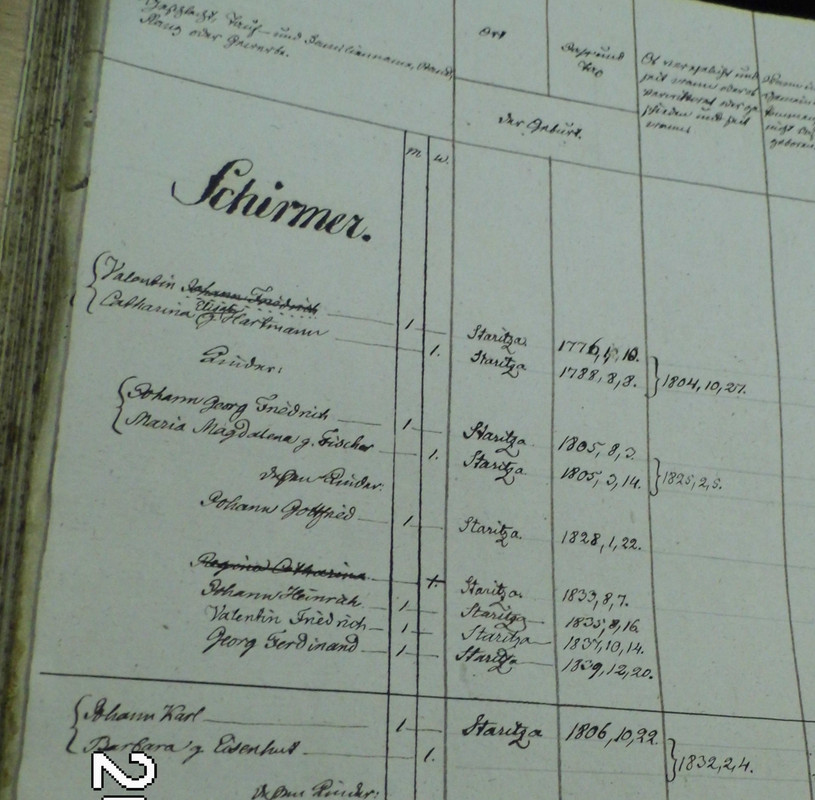 Geschlecht, Tauf- und Familienname, Stand,
Rang oder Gewerbe.
Ort
Jahr und
Tag
der Geburt.
Ob verehelicht und
seit wann oder ob
verwittwet oder ge-
schieden und seit
wann
m w.
Schirmer.
Valentin Johann Friedrich 1 Staritza 1776, 1, 10.
Catharina Elisab. g. Hartmann 1. Staritza 1788, 8, 8. 1804, 10, 27.
Kinder:
Johann Georg Friedrich 1 Staritza 1805, 8, 3.
Maria Magdalena g. Fischer 1. Staritza 1805, 3, 14. 1825, 2, 5.
dessen Kinder:
Johann Gottfried 1 Staritza 1828, 1, 22.
Regina Catharina 1. Staritza 1833, 8, 7.
Johann Heinrich 1 Staritza 1835, 9, 16.
Valentin Friedrich 1 Staritza 1837, 10, 14.
Georg Ferdinand 1 Staritza 1839, 12, 20.
Johann Karl 1 Staritza 1806, 10, 22
Barbara g. Eisenhut 1. 1832, 2, 4.
dessen Kinder: